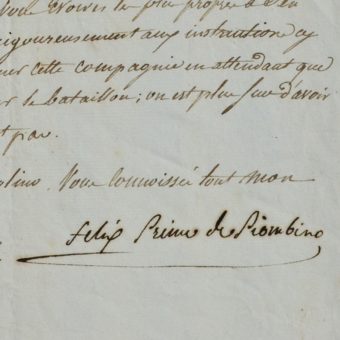 vous croirez le plus propre à s'en
rigoureusement aux instructions cy
mer cette compagnie en attendant que
r le bataillon; on est plus sur d'avoir
t pas.
olino. Vous connoissés tout mon
Felix Prince de Piombino